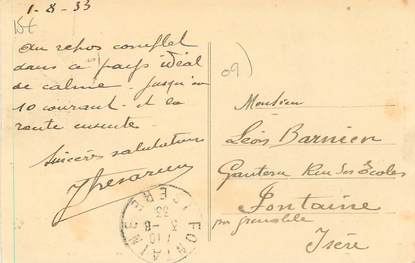 1-8-33
Au repos complet
dans ce pays idéal
de calme. jusqu'au
10 courant. et la
route ensuite.
Sincères salutations
09)
Monsieur
Léon Barnier
Rue des Écoles
Fontaine
par Grenoble
Isère
FONTAINE
ISÈRE